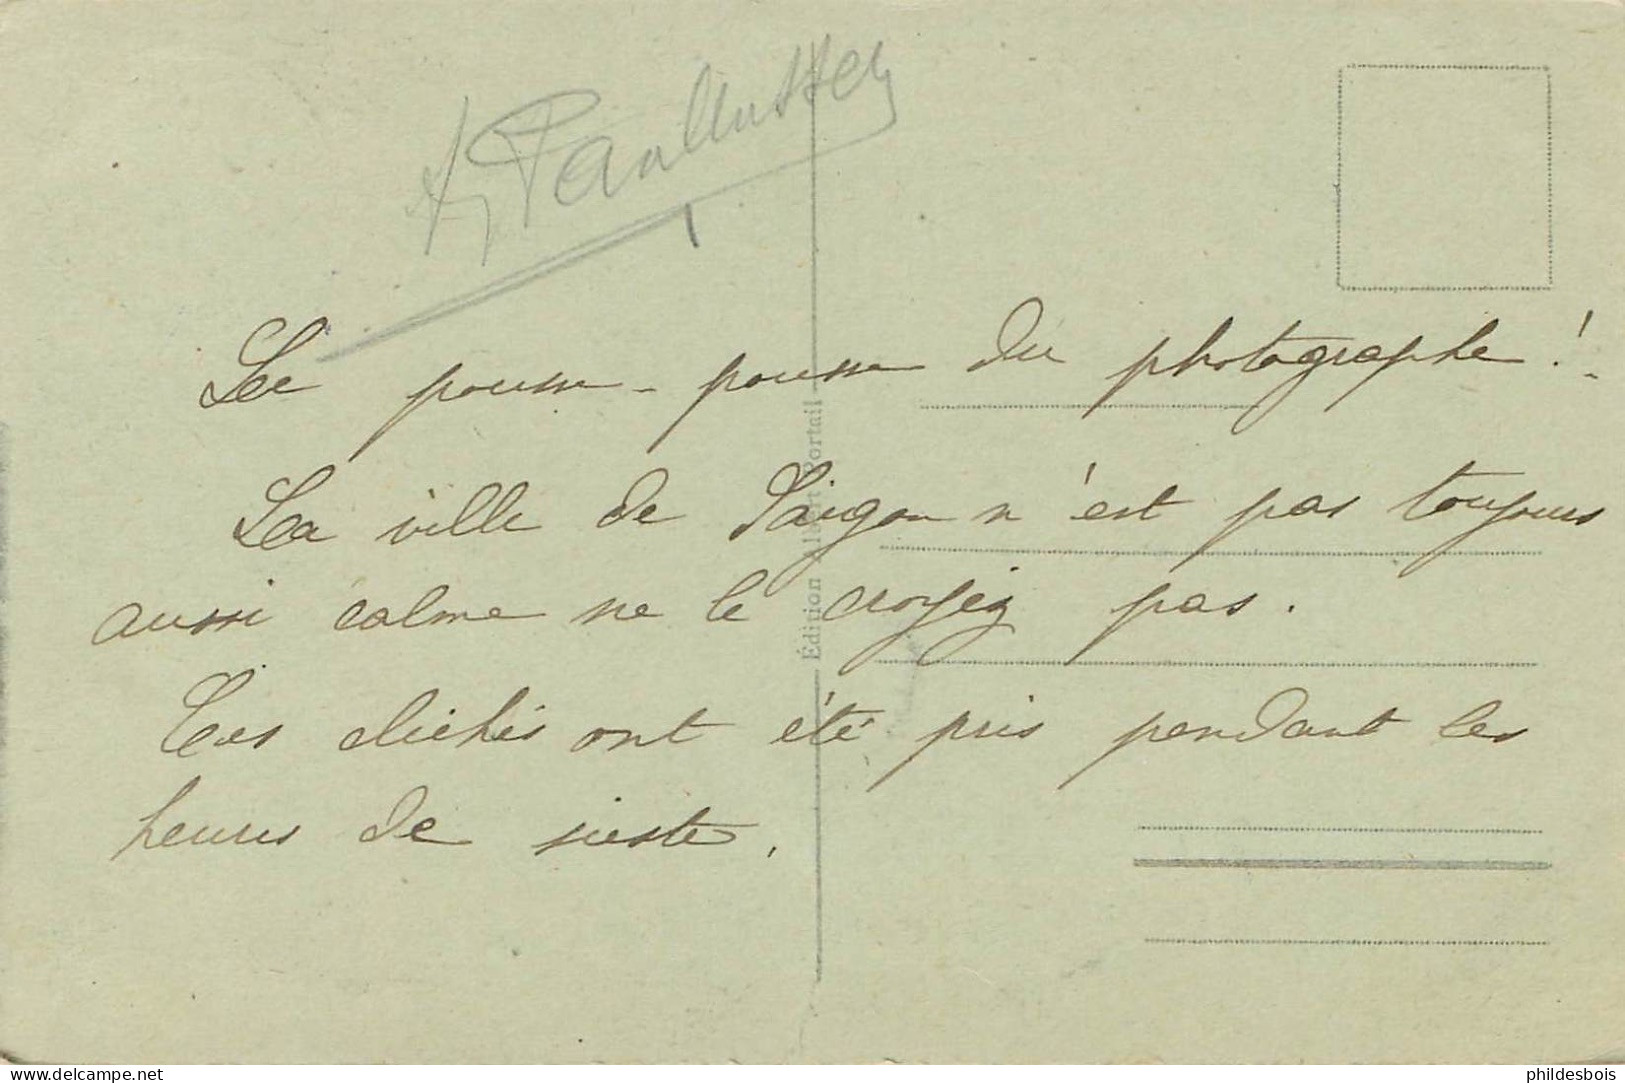 Le pousse-pousse du photographe!
La ville de Saigon n'est pas toujours
aussi calme ne le croyez pas.
Ces clichés ont été pris pendant les
heures de sieste.
Édition Portail
delcampe.net
phildesbois